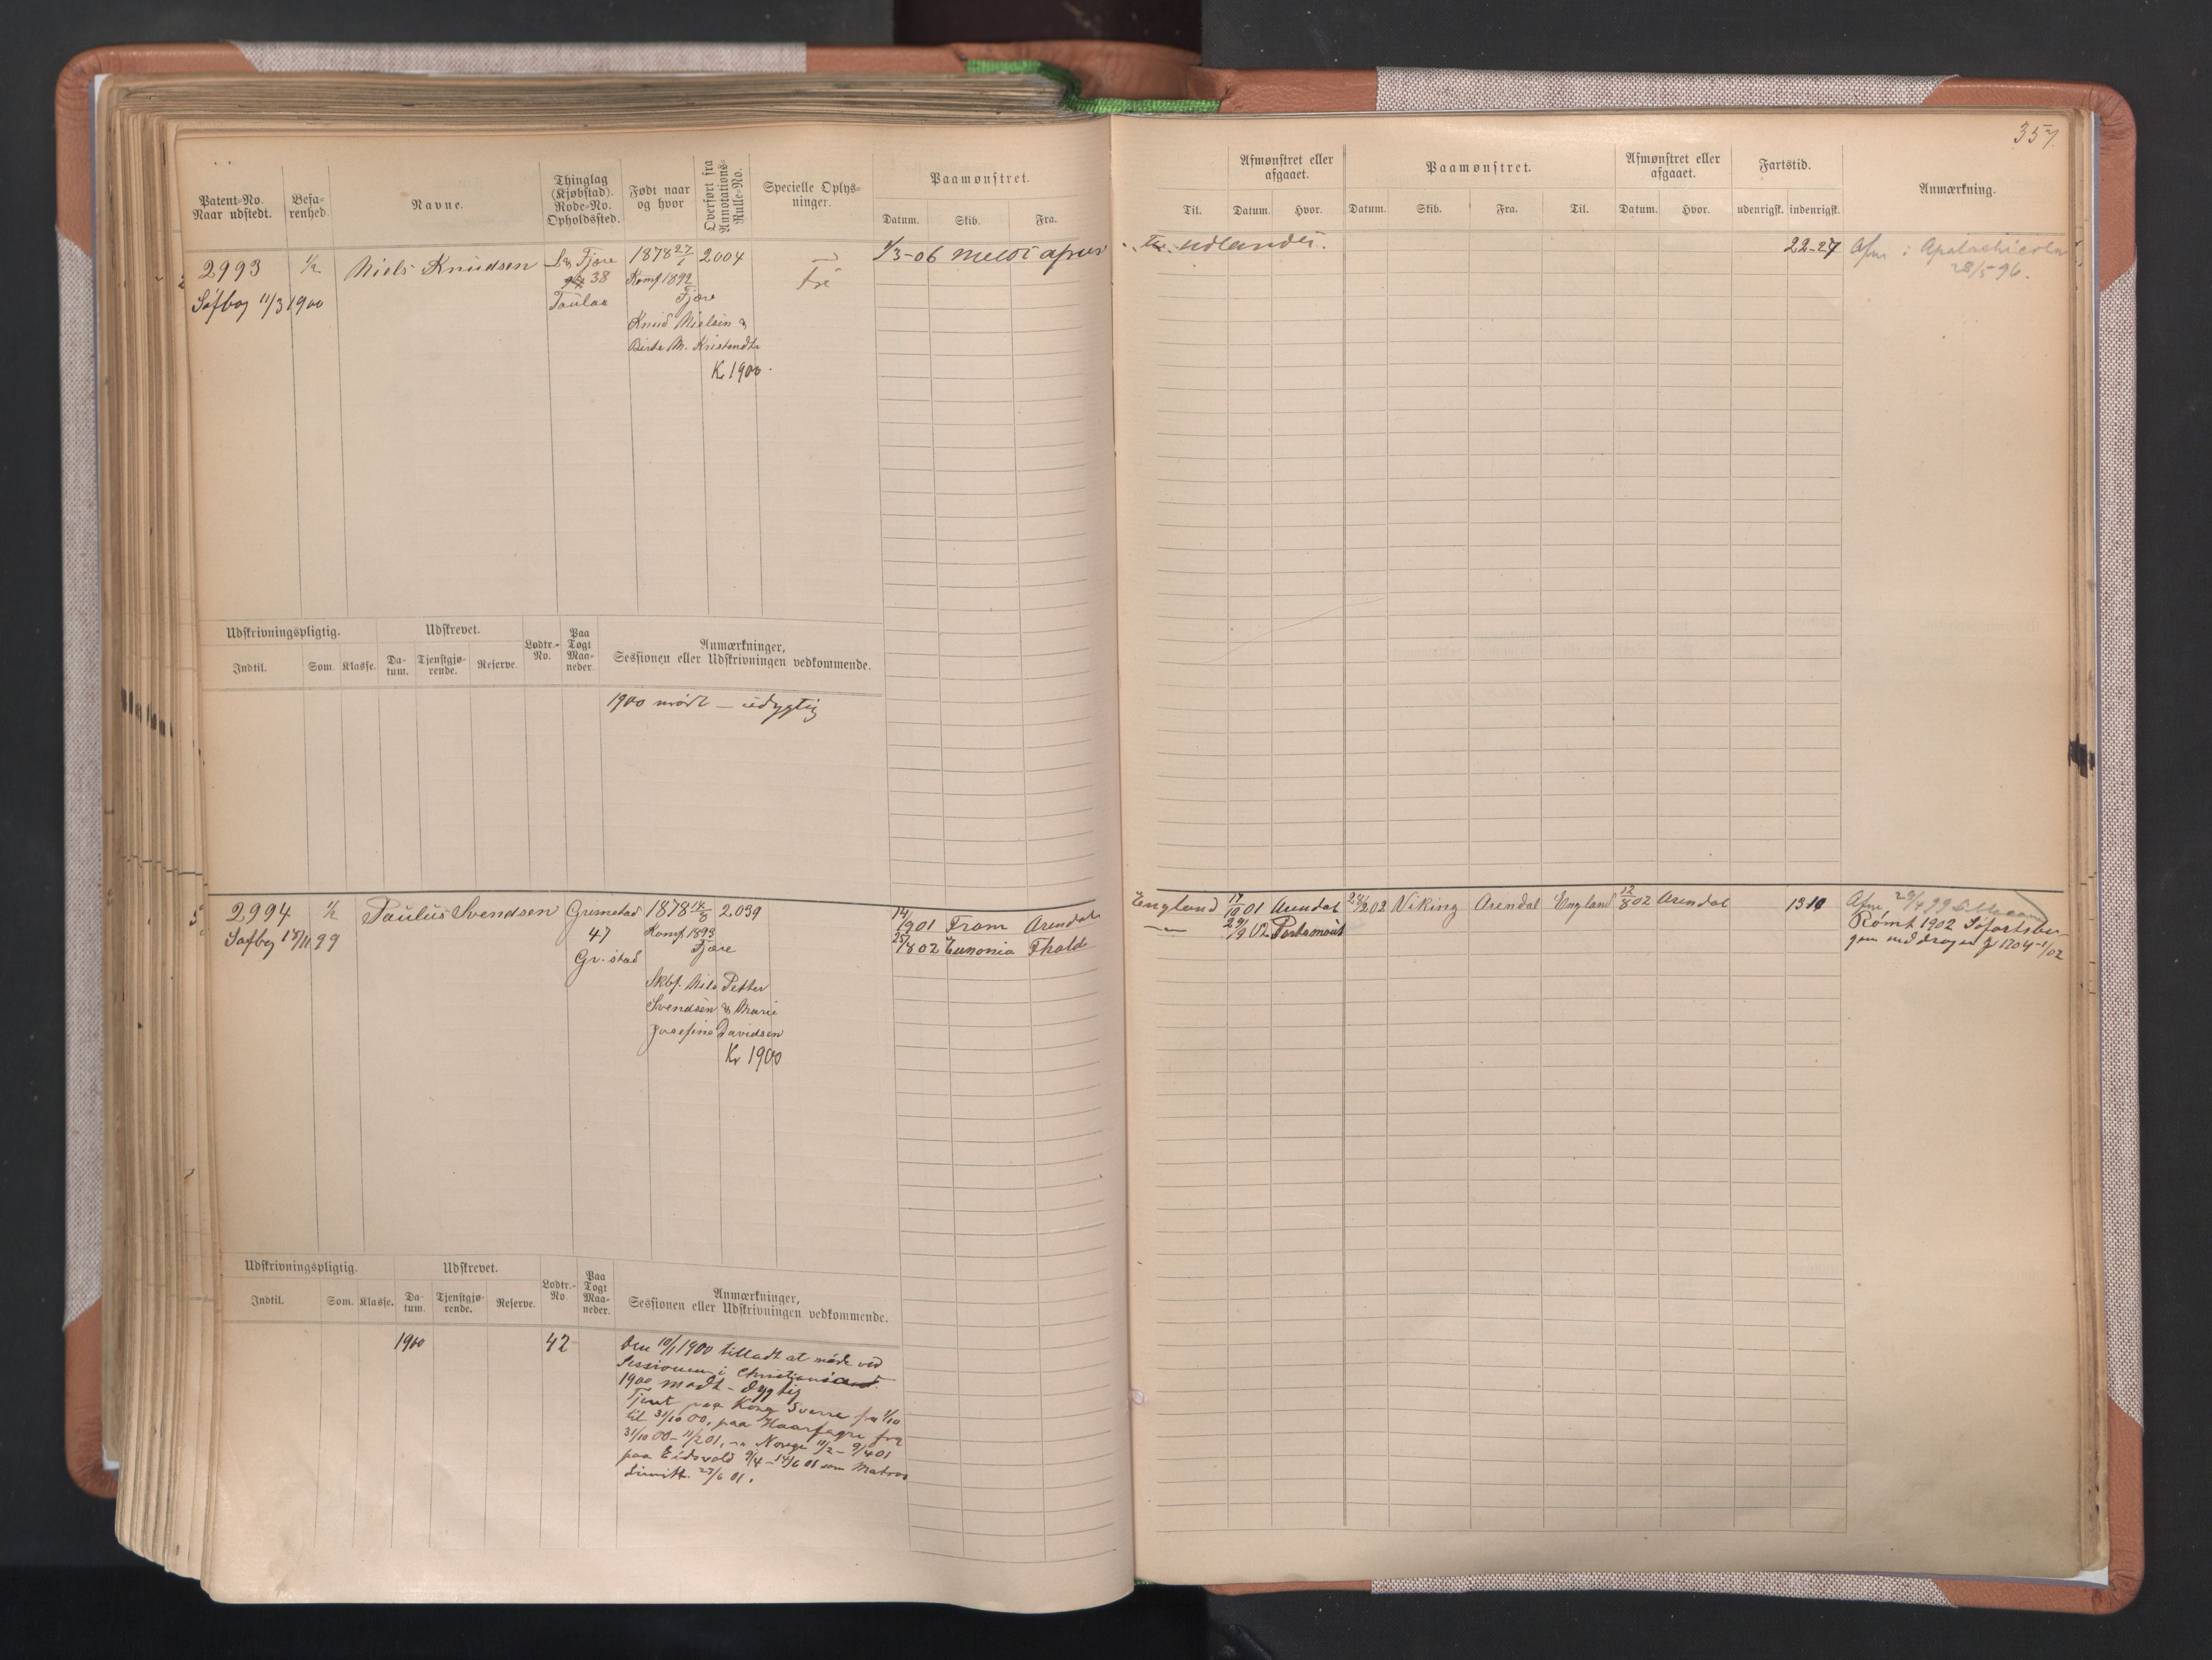 357.
Patent-No. Naar udstedt.
Befarenhed.
Navne.
Thinglag (Kjøbstad). Rode-No. Opholdssted.
Født naar og hvor
Overført fra Annotations-Rulle-No.
Specielle Oplysninger.
Paamønstret.
Datum. Skib. Fra.
Til.
Afmønstret eller afgaaet.
Datum. Hvor.
Paamønstret.
Datum. Skib. Fra. Til.
Afmønstret eller afgaaet.
Datum. Hvor.
Fartstid.
udenrigsk. indenrigsk.
Anmærkning.
2993 1/2 Niels Knudsen Fjære 1878 27/1 2004 1/3-06 meldt udlandet. 22-27 Afm i Apalachicola
38 Konf 1892 28/5 96.
Søfbog 11/3 1900 Fjære
Knud Nielsen &
Birte M. Kristendtr
Kr 1900.
Udskrivningspligtig.
Indtil. Som. Klasse.
Udskrevet.
Datum. Tjenstgjørende. Reserve.
Lodtr.-No.
Paa Togt Maaneder.
Anmærkninger, Sessionen eller Udskrivningen vedkommende.
1900 mødt – udygtig
2994 1/2 Paulus Svendsen Grimstad 1878 14/8 2039 14/9 01 Fram Arendal England 17/10 01 Arendal 24/2 02 Viking Arendal England 12/8 02 Arendal 13 10 Afm 29/4 99
Søfbog 18/11 99 47 Konf 1893 25/8 02 Eunonia Thold 29/9 02 Rømt 1902
Gr.stad Fjære
Skbf. Nils Petter
Svendsen & Marie
Josefine Davidsen
Kr 1900
Udskrivningspligtig.
Indtil. Som. Klasse.
Udskrevet.
Datum. Tjenstgjørende. Reserve.
Lodtr.-No.
Paa Togt Maaneder.
Anmærkninger, Sessionen eller Udskrivningen vedkommende.
1900 42 Den 10/1 1900 tilladt at møde ved
Sessionen i
1900 mødt – dygtig
Tjent paa Kong Sverre fra 1/10
til 31/10 00, paa Haarfagre fra
31/10 00 – 11/2 01, Norge 11/2 – 9/4 01
paa Eidsvold 9/4 – 14/6 01 som Matros
Dimitt. 27/6 01.